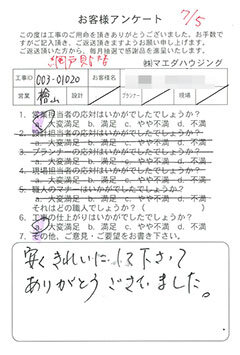 お客様アンケート
7/5
この度は工事のご用命を頂きありがとうございました。お手数で
すがご記入頂き、ご返送頂きますようお願い申し上げます。
ご返送頂いた方から、毎月抽選で感謝品を進呈いたします。
網戸貼替
(株)マエダハウジング
工事ID 003-01020 お客様名
営業 檜山 設計 プランナー 現場
1. 営業担当者の応対はいかがでしたでしょうか?
a. 大変満足 b. 満足 c. やや不満 d. 不満
2. 設計担当者の応対はいかがでしたでしょうか?
a. 大変満足 b. 満足 c. やや不満 d. 不満
3. プランナーの応対はいかがでしたでしょうか?
a. 大変満足 b. 満足 c. やや不満 d. 不満
4. 現場担当者の応対はいかがでしたでしょうか?
a. 大変満足 b. 満足 c. やや不満 d. 不満
5. 職人のマナーはいかがでしたでしょうか?
a. 大変満足 b. 満足 c. やや不満 d. 不満
それはどの職人でしょうか? ( )
6. 工事の仕上がりはいかがでしたでしょうか?
a. 大変満足 b. 満足 c. やや不満 d. 不満
7. その他、ご意見・ご要望をお書き下さい。
安くきれいにして下さって
ありがとうございました。